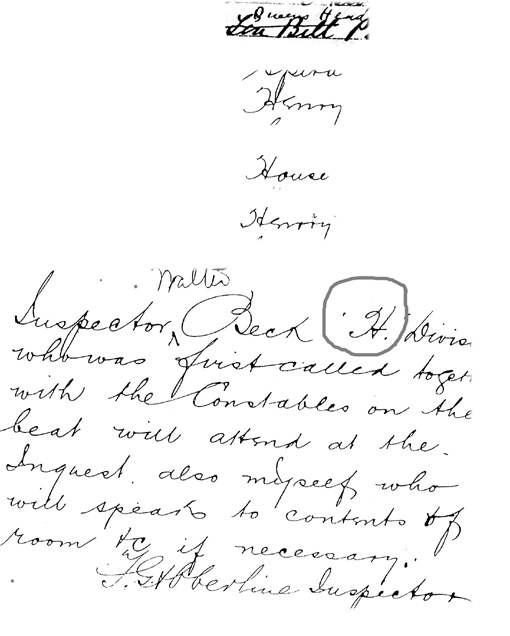 Queens Head
Henry
House
Henry
Walter
Inspector Beck 'H' Divis
who was first called toget
with the Constables on the
beat will attend at the
Inquest. also myself who
will speak to contents of
room &c if necessary.
F.G.Abberline Inspector